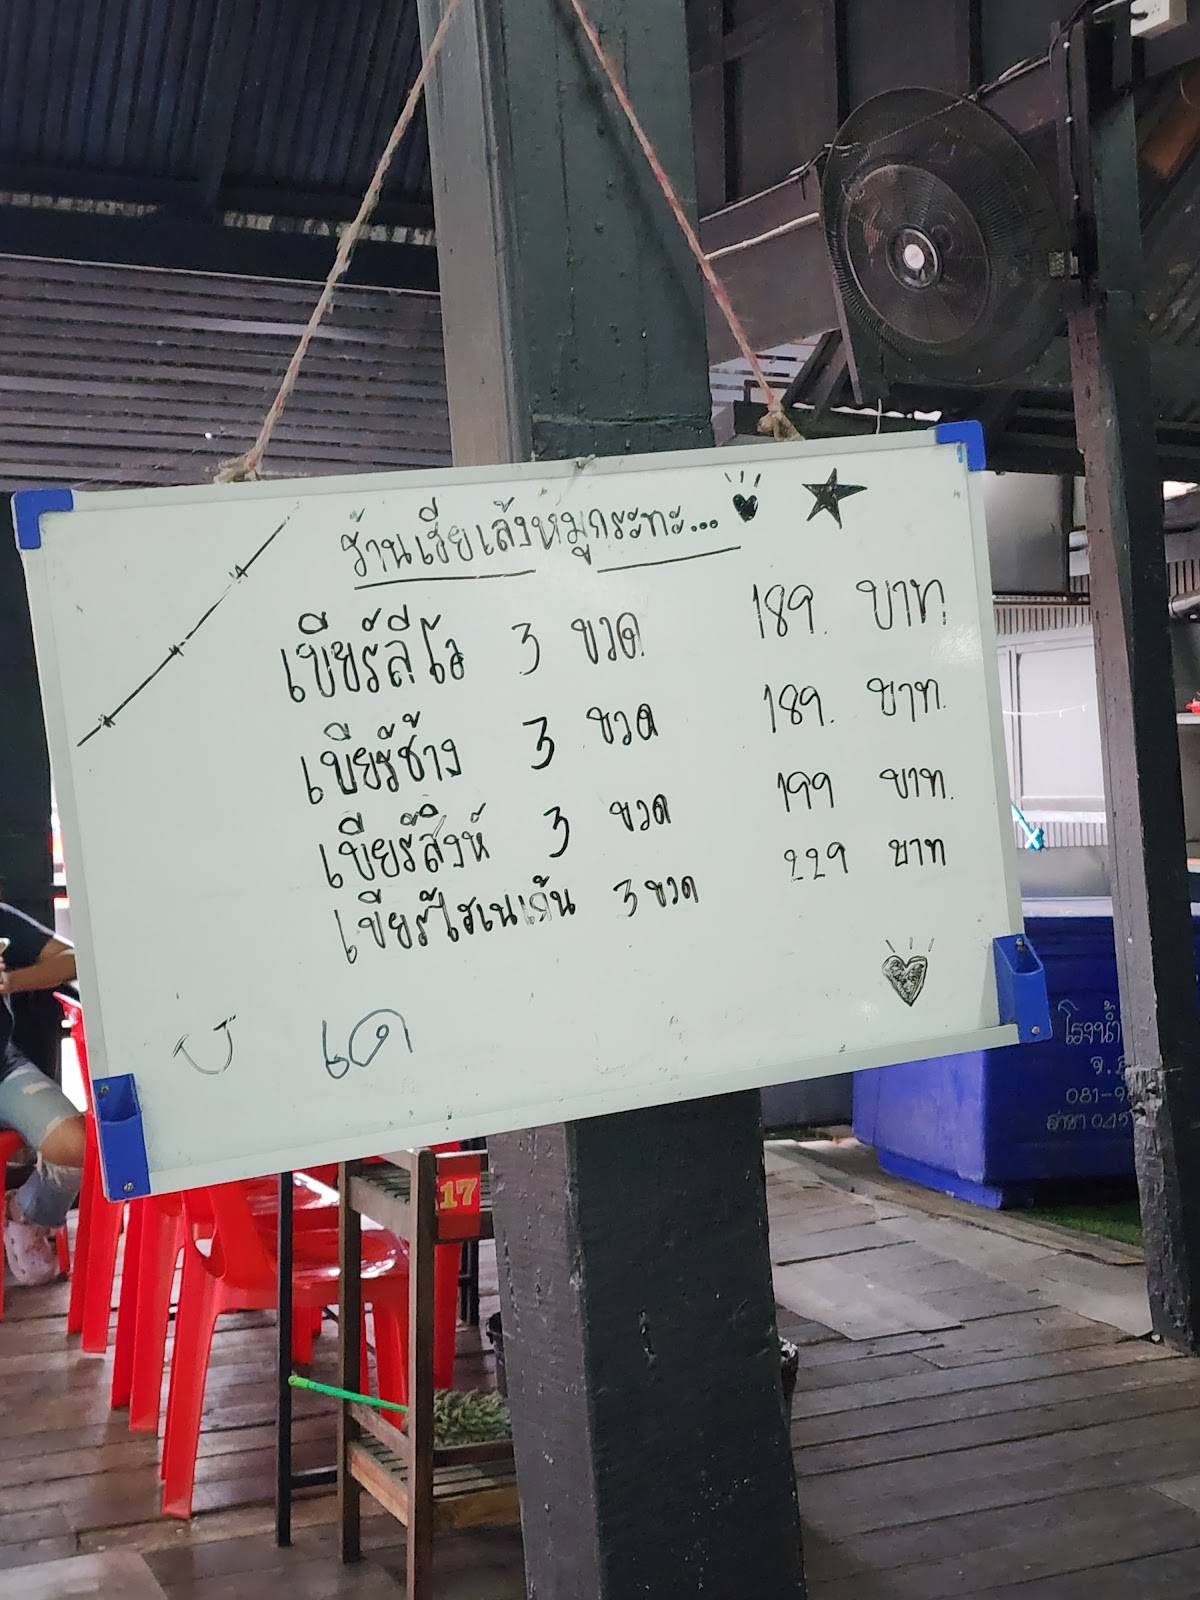 ร้านเฮียเล้งหมูกระทะ...
เบียร์ลีโอ 3 ขวด 189. บาท.
เบียร์ช้าง 3 ขวด 189. บาท.
เบียร์สิงห์ 3 ขวด 199 บาท.
เบียร์ไฮเนเก้น 3 ขวด 229 บาท
เด
17
โรงน้ำ
จ.
081-9
สาขา 045